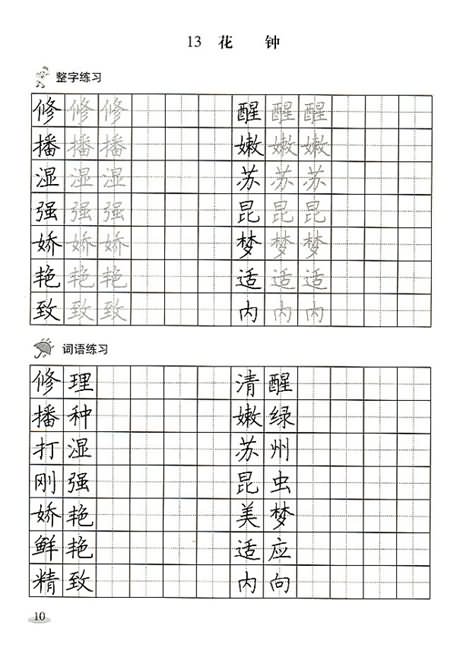 13 花 钟
整字练习
修 修 修 醒 醒 醒
播 播 播 嫩 嫩 嫩
湿 湿 湿 苏 苏 苏
强 强 强 昆 昆 昆
娇 娇 娇 梦 梦 梦
艳 艳 艳 适 适 适
致 致 致 内 内 内
词语练习
修 理 清 醒
播 种 嫩 绿
打 湿 苏 州
刚 强 昆 虫
娇 艳 美 梦
鲜 艳 适 应
精 致 内 向
10